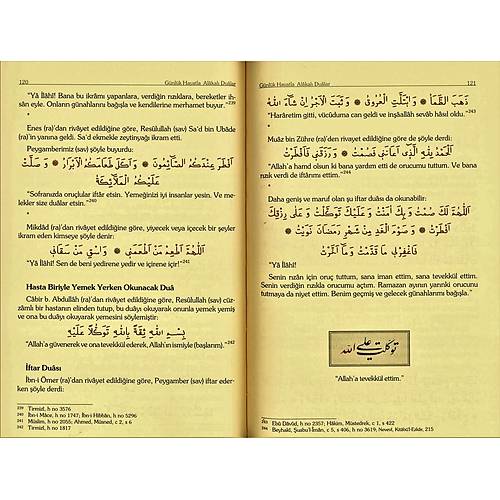 120
Günlük Hayatla Alâkalı Duâlar
"Yâ İlâhî! Bana bu ikramı yapanlara, verdiğin rızıklara, bereketler ih-
sân eyle. Onların günahlarını bağışla ve kendilerine merhamet buyur."239
*
Enes (ra)'dan rivâyet edildiğine göre, Resûlullah (sav) Sa'd bin Ubâde
(ra)'in yanına geldi. Sa'd ekmekle zeytinyağı ikram etti.
Peygamberimiz (sav) şöyle buyurdu:
اَفْطَرَ عِنْدَكُمُ الصَّٓائِمُونَ ۞ وَاَكَلَ طَعَامَكُمُ الْاَبْرَارُ ۞ وَ صَلَّتْ
عَلَيْكُمُ الْمَلٰٓئِكَةُ
"Sofranızda oruçlular iftâr etsin. Yemeğinizi iyi insanlar yesin. Ve me-
lekler size duâlar etsin."240
*
Mikdâd (ra)'dan rivâyet edildiğine göre, yiyecek veya içecek bir şeyler
ikram eden kimseye şöyle denir:
اَللّٰهُمَّ اَطْعِمْ مَنْ اَطْعَمَنِى ۞ وَاسْقِ مَنْ سَقَانِى
"Yâ İlâhî! Sen de beni yedirene yedir ve içirene içir!"241
Hasta Biriyle Yemek Yerken Okunacak Duâ
Câbir b. Abdullah (ra)'dan rivâyet edildiğine göre, Resûlullah (sav) cüz-
zâmlı bir hastanın elinden tutup, bu duâyı okuyarak onunla yemek yemiş
ve ona bu duâyı okuyarak yemesini söylemiştir:
بِسْمِ اللّٰهِ ثِقَةً بِاللّٰهِ تَوَكُّلاً عَلَيْهِ
"Allah'a güvenerek ve ona tevekkül ederek, Allah'ın ismiyle (başlarım)."242
İftar Duâsı
İbn-i Ömer (ra)'dan rivâyet edildiğine göre, Peygamber (sav) iftar eder-
ken şöyle derdi:
239 Tirmizî, h no 3576
240 İbn-i Mâce, h no 1747; İbn-i Hibbân, h no 5296
241 Müslim, h no 2055; Ahmed, Müsned, c 2, s 6
242 Tirmizî, h no 1817
Günlük Hayatla Alâkalı Duâlar
121
ذَهَبَ الظَّمَأُ ۞ وَابْتَلَّتِ الْعُرُوقُ ۞ وَثَبَتَ الْاَجْرُ اِنْ شَٓاءَ اللّٰهُ
"Harâretim gitti, vücûduma can geldi ve inşâallâh sevâb hâsıl oldu."243
*
Muâz bin Zühre (ra)'dan rivâyet edildiğine göre de şöyle derdi:
اَلْحَمْدُ لِلّٰهِ الَّذِى اَعَانَنِى فَصُمْتُ ۞ وَرَزَقَنِى فَاَفْطَرْتُ
"Allah'a hamd olsun ki bana yardım etti de orucumu tuttum. Ve bana
rızık verdi de iftârımı ettim."244
*
Daha geniş ve maruf olan şu iftar duâsı da okunabilir:
اَللّٰهُمَّ لَكَ صُمْتُ وَ بِكَ اٰمَنْتُ وَ عَلَيْكَ تَوَكَّلْتُ وَ عَلٰى رِزْقِكَ
اَفْطَرْتُ ۞ وَ صَوْمَ الْغَدِ مِنْ شَهْرِ رَمَضَانَ نَوَيْتُ ۞
فَاغْفِرْلِى مَا قَدَّمْتُ وَ مَٓا اَخَّرْتُ
"Yâ İlâhî!
Senin rızân için oruç tuttum, sana iman ettim, sana tevekkül ettim.
Senin verdiğin rızıkla orucumu açtım. Ramazan ayının yarınki orucunu
tutmaya da niyet ettim. Benim geçmiş ve gelecek günahlarımı bağışla."
توكلت على الله
"Allah'a tevekkül ettim."
243 Ebû Dâvûd, h no 2357; Hâkim, Müstedrek, c 1, s 422
244 Beyhakî, Şuabu'l-Îmân, c 5, s 406, h no 3619; Nevevî, Kitâbü'l-Ezkâr, 215